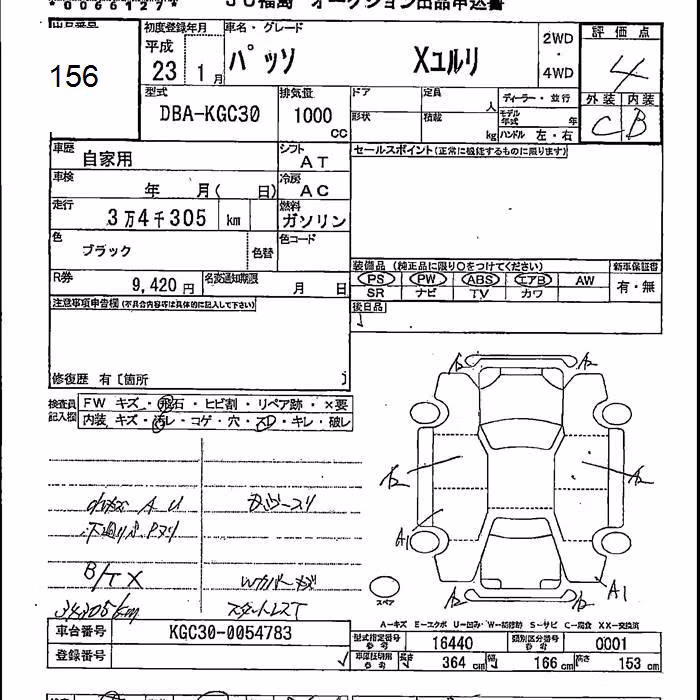 JU福島 オークション出品申込書
156
初度登録年月
車名・グレード
平成 23 1月
パッソ Xユルリ
2WD・4WD
評価点
4
外装 内装
C B
型式
DBA-KGC30
排気量
1000 CC
ドア 定員 人
形状 積載 kg
ディーラー・並行
モデル年式 年
ハンドル 左・右
車歴
自家用
シフト
AT
セールスポイント(正常に機能するものに限ります)
車検
年 月( 日)
冷房
AC
走行
3万4千305 km
燃料
ガソリン
色
ブラック
色替
色コード
装備品 (純正品に限り○をつけてください)
新車保証書
PS PW ABS エアB AW
SR ナビ TV カワ
有・無
R券
9,420円
名変通知期限
月 日
後日品
注意事項申告欄(不具合内容等は具体的に記入して下さい)
修復歴 有〔箇所
検査員記入欄
FW キズ・飛石・ヒビ割・リペア跡・×要
内装 キズ・汚レ・コゲ・穴・スレ・キレ・破レ
A2 A2
A2 A2
A1
A1
A2 A2
小キズ A U
下廻りP
B/T X
Wカバーキズ
34305km
スペア
A=キズ E=エクボ U=凹み W=補修跡 S=サビ C=腐食 XX=交換済
車台番号
KGC30-0054783
登録番号
型式指定番号 参考
16440
類別区分番号 参考
0001
車庫証明用 参考
長さ 364 cm 幅 166 cm 高さ 153 cm